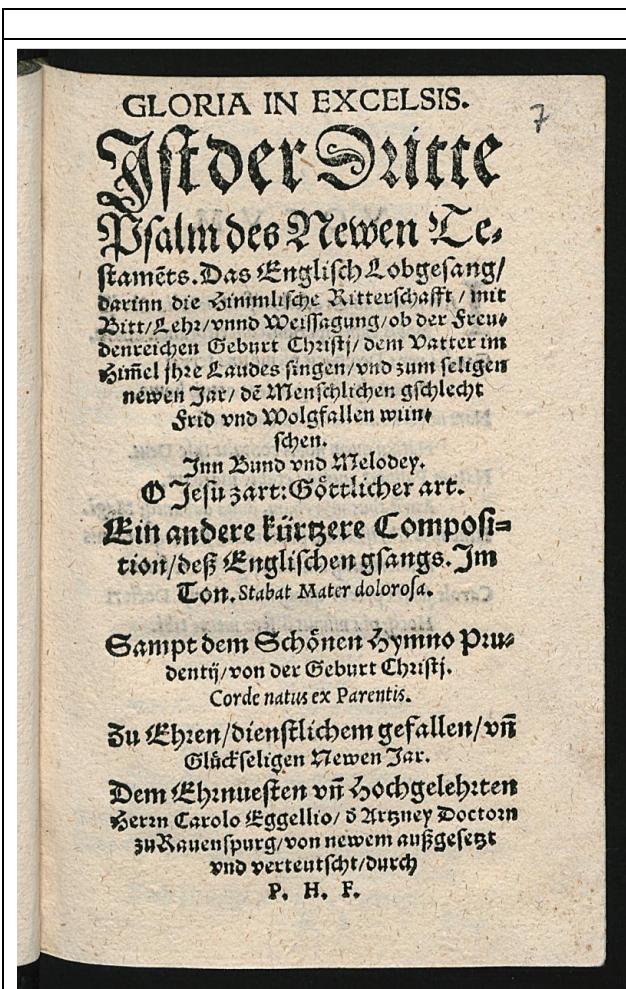 GLORIA IN EXCELSIS.
7
Jst der Dritte
Psalm des Newen Te-
stamēts. Das Englisch Lobgesang/
darinn die Himmlische Ritterschafft / mit
Bitt/Lehr/vnnd Weissagung/ob der Freu-
denreichen Geburt Christj/ dem Vatter im
Him̃el jhre Laudes singen/vnd zum seligen
newen Jar/ dē Menschlichen gschlecht
Frid vnd Wolgfallen wün-
schen.
Jnn Bund vnd Melodey.
O Jesu zart: Göttlicher art.
Ein andere kürtzere Composi=
tion/deß Englischen gsangs. Jm
Ton. Stabat Mater dolorosa.
Sampt dem Schönen Hymno Pru-
dentij/von der Geburt Christj.
Corde natus ex Parentis.
Zu Ehren/dienstlichem gefallen/vñ
Glückseligen Newen Jar.
Dem Ehrnuesten vñ Hochgelehrten
Herrn Carolo Eggellio/ õ Artzney Doctorn
zu Rauenspurg/von newem außgesetzt
vnd verteutscht/durch
P. H. F.